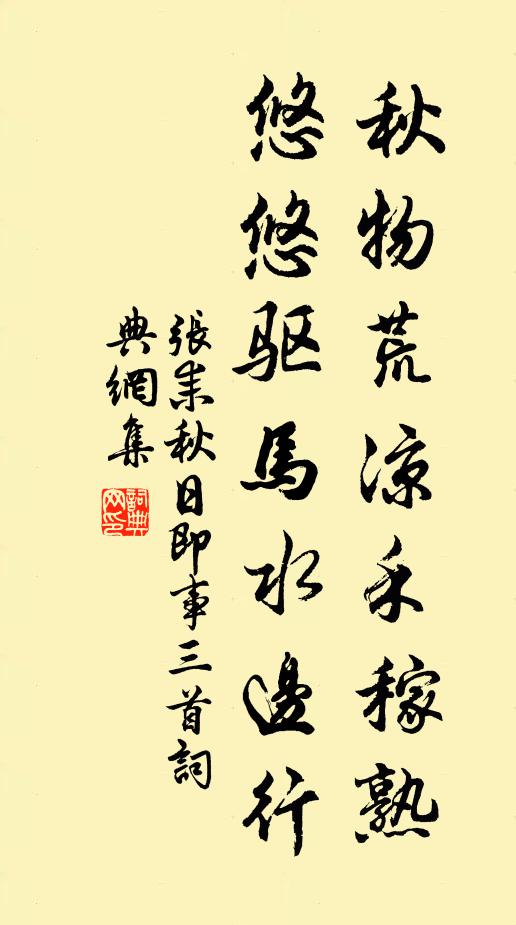 秋物荒涼禾稼熟
悠悠驱馬水邊行
張耒秋日即事三首詞
典網集
詞典
网印